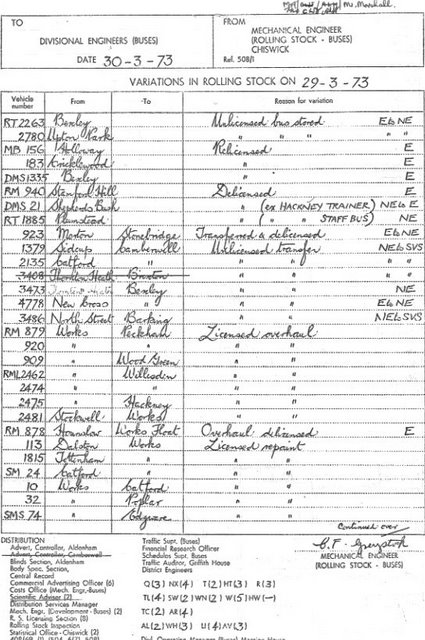 Mr. Marshall
TO
DIVISIONAL ENGINEERS (BUSES)
DATE 30-3-73
FROM
MECHANICAL ENGINEER
(ROLLING STOCK - BUSES)
CHISWICK
Ref. 508/1
VARIATIONS IN ROLLING STOCK ON 29-3-73
Vehicle number From To Reason for variation
RT 2263 Bexley Unlicensed bus stored E6 NE
2780 Upton Park " " " " "
MB 156 Holloway Relicensed E
183 Cricklewood " E
DMS 1335 Bexley " E
RM 940 Stamford Hill Delicensed E
DMS 21 Shepherds Bush " (ex HACKNEY TRAINER) NE6 E
RT 1885 Plumstead " ( " STAFF BUS) NE
923 Merton Stonebridge Transferred & delicensed E6 NE
1379 Sidcup Camberwell Unlicensed transfer NE6 SVS
2135 Catford " " " "
3408 Thornton Heath Brixton " "
3473 Bexley " " NE
4778 New Cross " " " E6 NE
3486 North Street Barking " " NE6 SVS
RM 879 Works Peckham Licensed overhaul
920 " " " "
909 " Wood Green " "
RML 2462 " Willesden " "
2474 " " " "
2475 " Hackney " "
2481 Stockwell Works " "
RM 878 Hounslow Works Float Overhaul delicensed E
113 Dalston Works Licensed repaint
1815 Tottenham " " "
SM 24 Catford " " "
10 Works Catford " "
32 " Poplar " "
SMS 74 " Edgware " "
Continued over
DISTRIBUTION
Advert. Controller, Aldenham
Advert. Controller, Camberwell
Blinds Section, Aldenham
Body Spec. Section,
Central Record
Commercial Advertising Officer (6)
Costs Office (Mech. Engr.-Buses)
Scientific Adviser (2)
Distribution Services Manager
Mech. Engr. (Development - Buses) (2)
R. S. Licensing Section (8)
Rolling Stock Inspection
Statistical Office - Chiswick (2)
Traffic Supt. (Buses)
Financial Research Officer
Schedules Supt. Buses
Traffic Auditor, Griffith House
District Engineers
Q(3) NX(4) T(2) HT(3) R(3)
TL(4) SW(2) WN(2) W(5) HW(-)
TC(2) AR(4)
AL(2) WH(3) U(4) AV(3)
MECHANICAL ENGINEER
(ROLLING STOCK - BUSES)